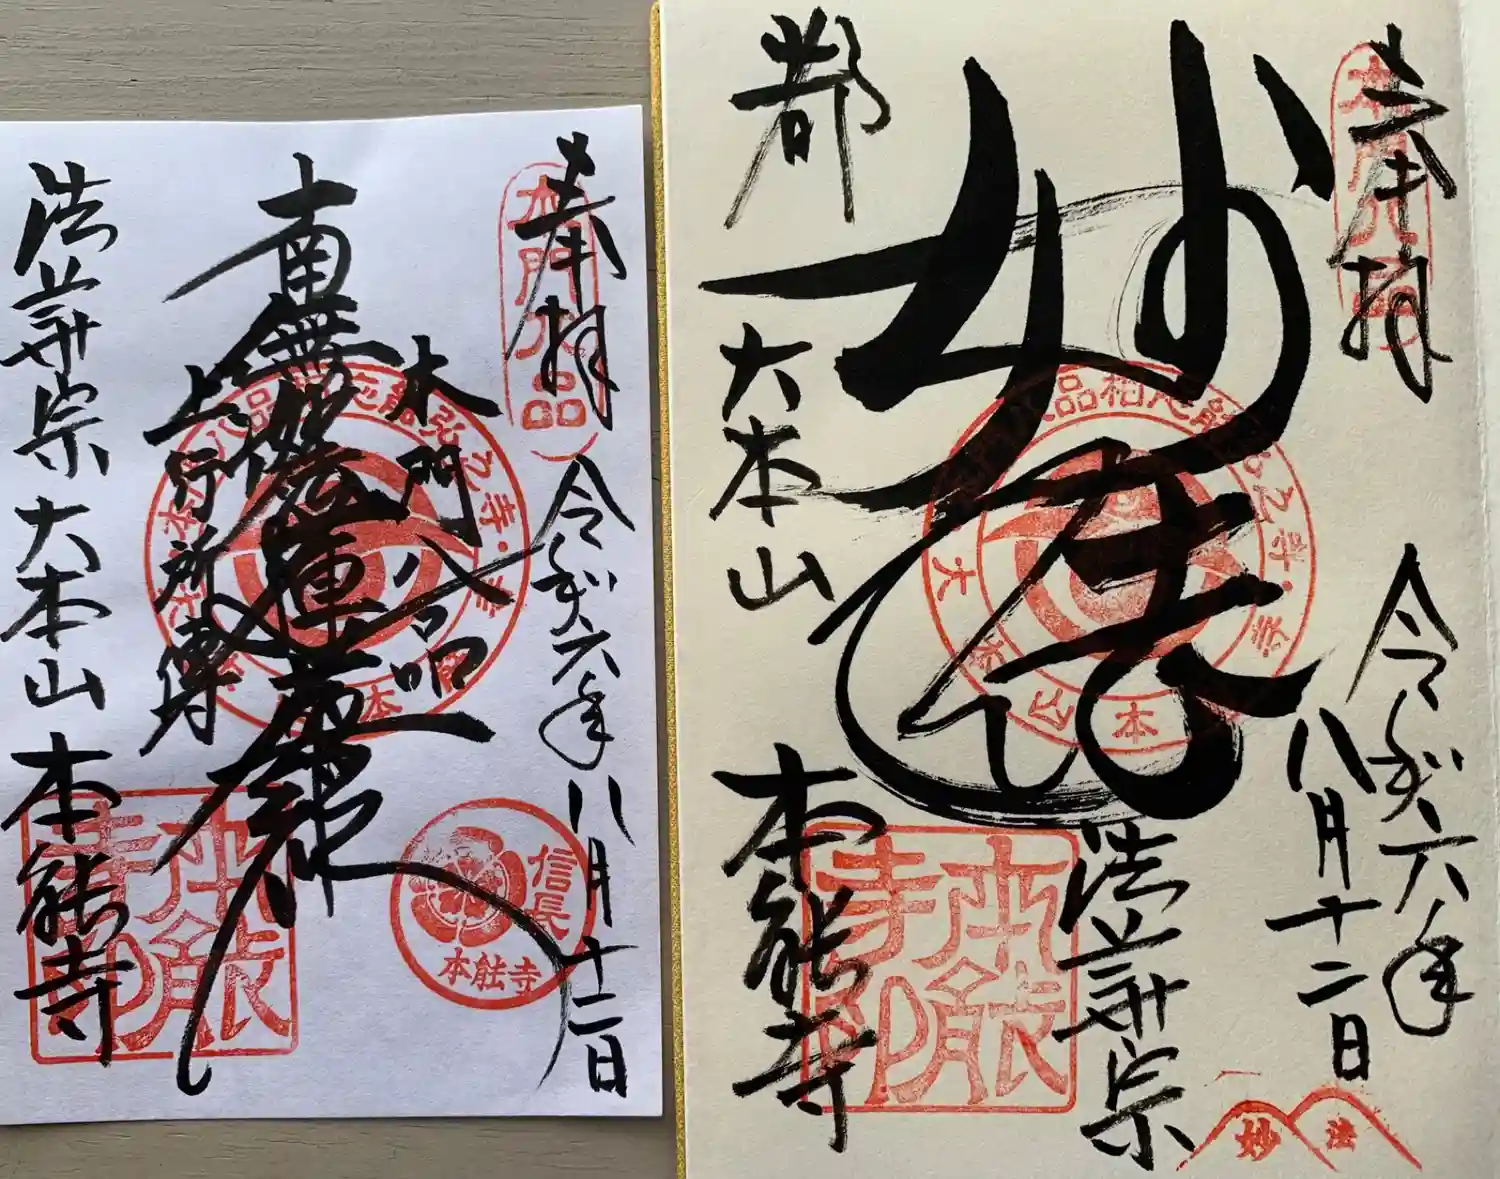 奉拝
令和六年八月十二日
本門八品
南無妙法蓮華経
上行所傳
法華宗大本山本能寺
本門八品
信長
本能寺
本能寺印
奉拝
令和六年
八月十二日
妙法
法華宗
都
大本山
本能寺
本能寺印
妙
法